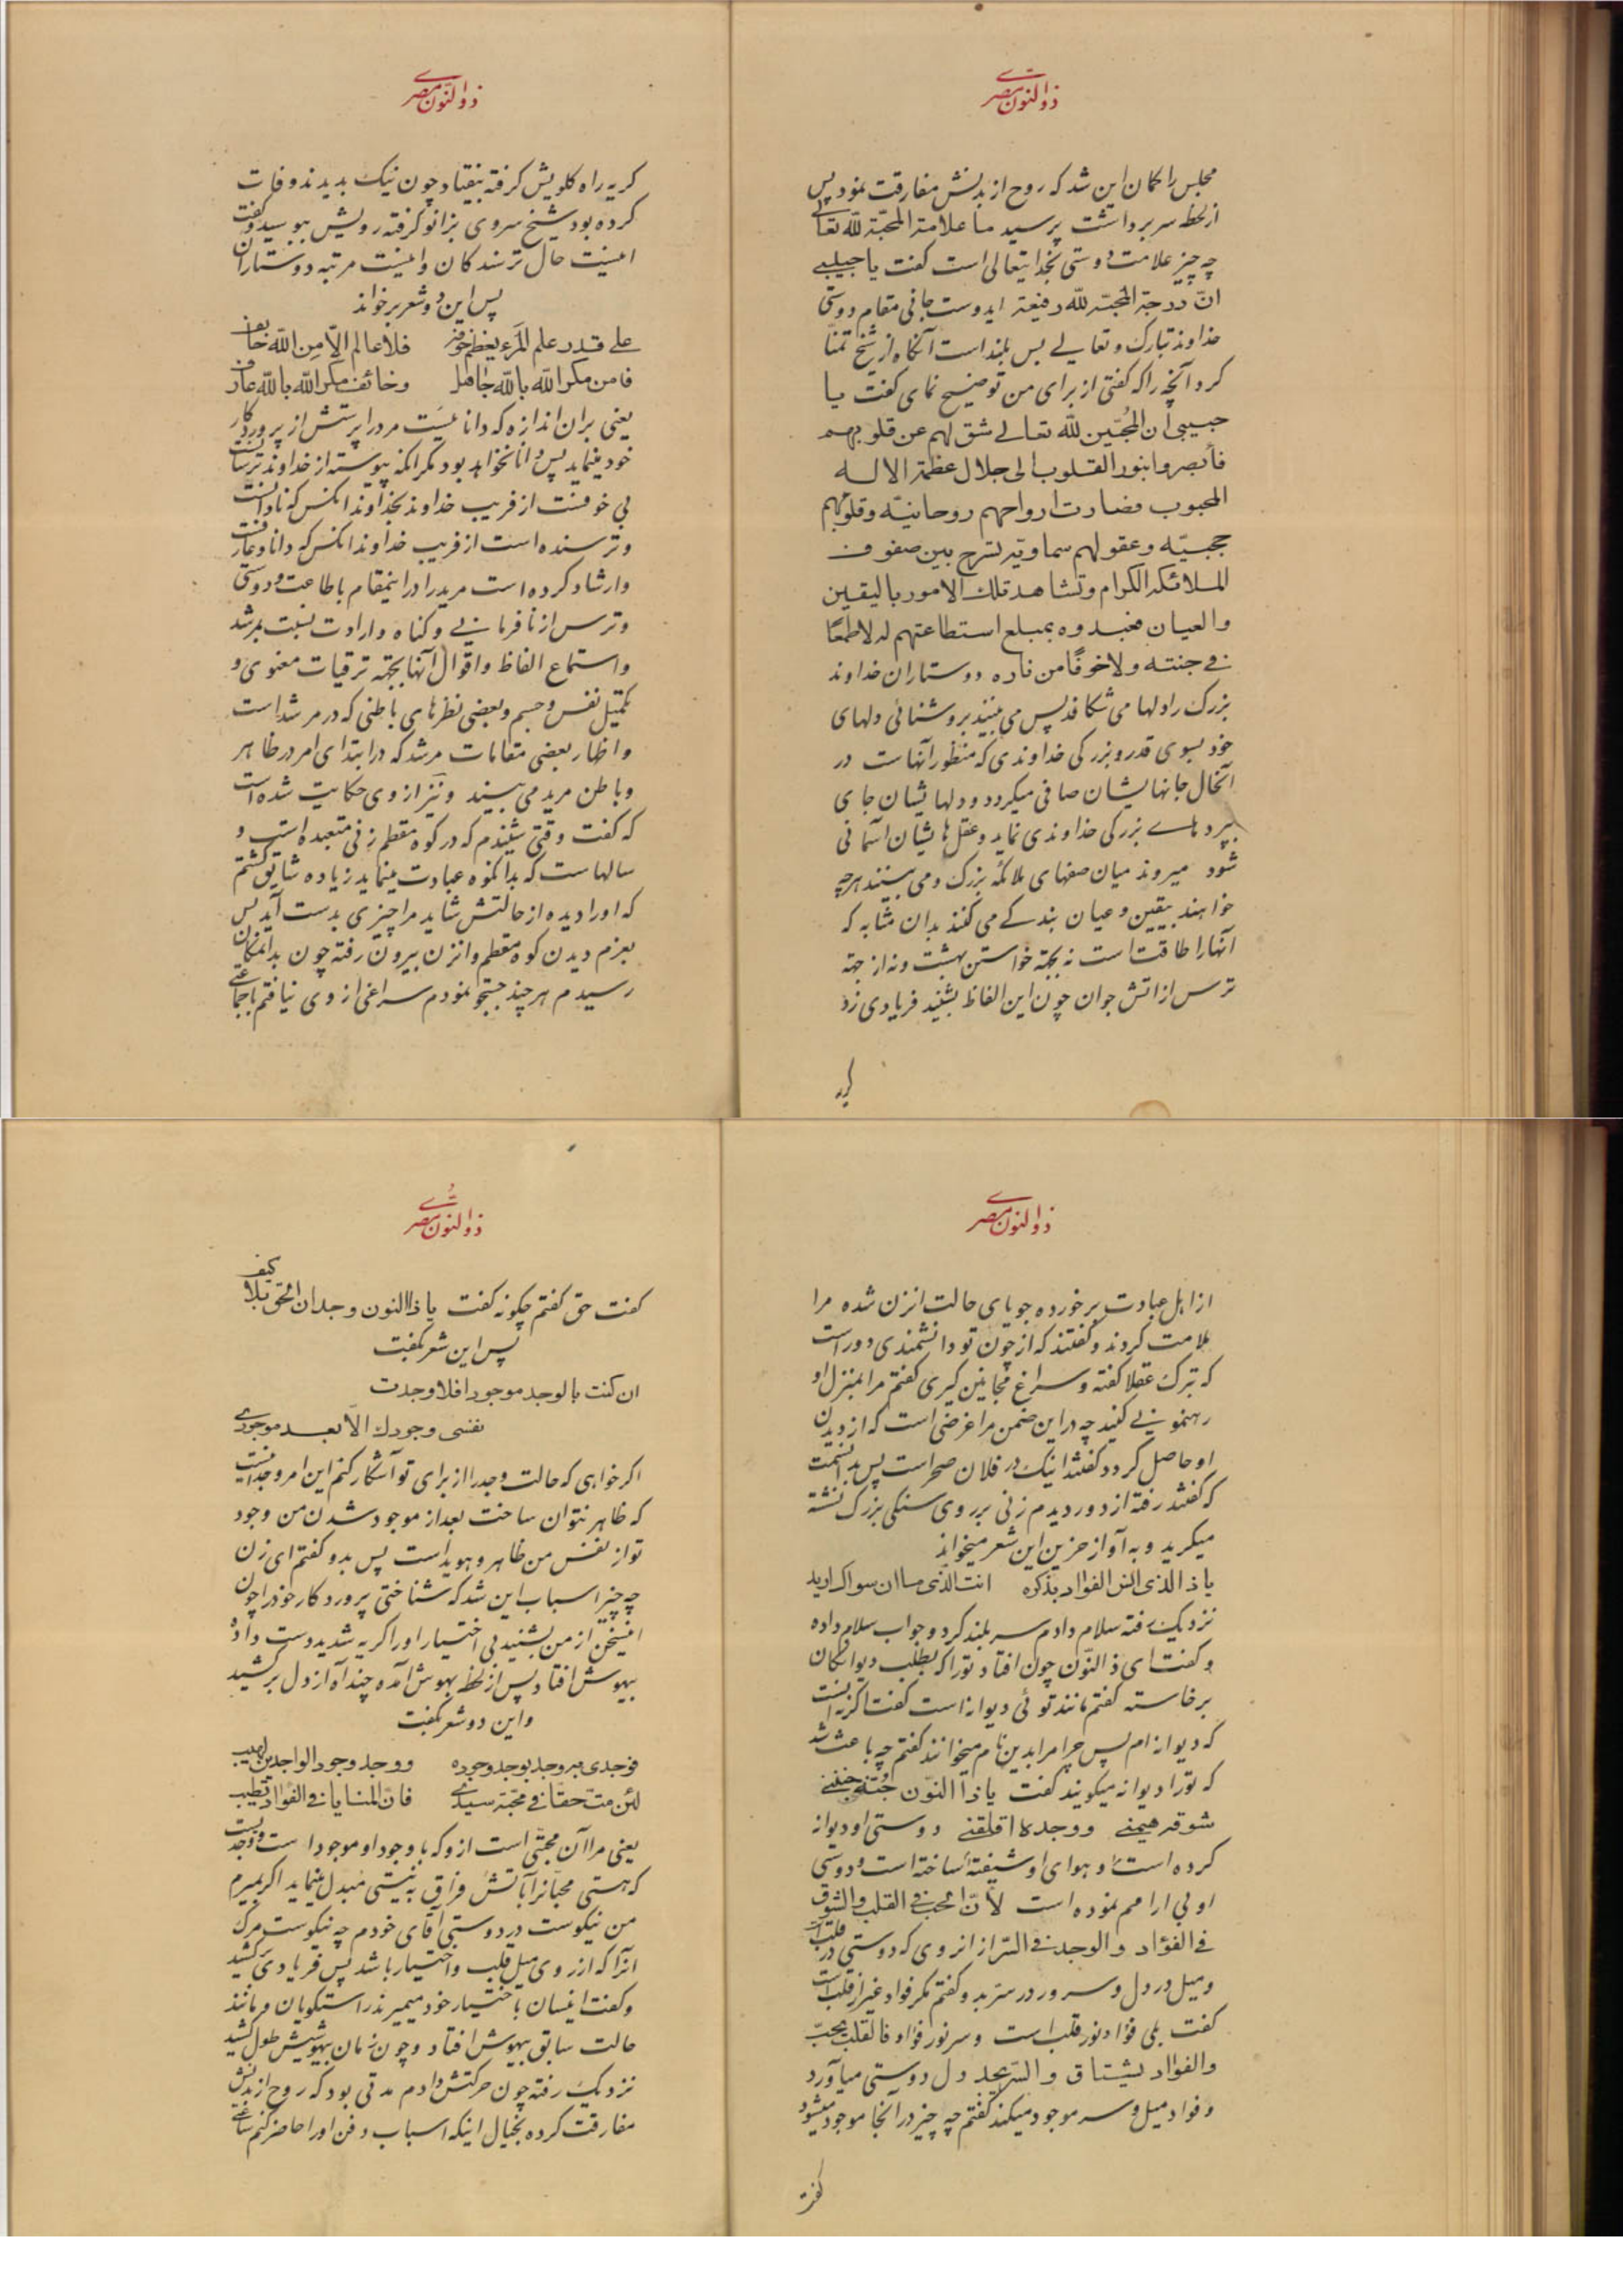 ذوالنون مصری
مجلس را کمان این شد که روح از بدنش مفارقت نمود پس
از لحظه سر برداشت پرسید ما علامة المحبّة للّه تعالی
چه چیز علامت دوستی بخدایتعالی است کفت یا حبیبی
انّ درجة المحبّة للّه رفیعة ایدوست جانی مقام دوستی
خداوند تبارک و تعالی بس بلند است آنکاه از شیخ تمنّا
کرد آنچه را که کفتی از برای من توضیح نمای کفت یا
حبیبی ان المُحبّین للّه تعالی شق لهم عن قلوبهم
فأبصروا بنور القلوب الی جلال عظمة الاله
المحبوب فصارت ارواحهم روحانیّة وقلوبهم
حجبیّه وعقولهم سماویّة تسرح بین صفوف
الملائکه الکرام وتشاهد تلک الامور بالیقین
والعیان فعبدوه بمبلغ استطاعتهم له لاطمعًا
فی جنته ولا خوفًا من ناره دوستاران خداوند
بزرک را دلها می شکافد پس می بینند بروشنائی دلهای
خود بسوی قدر و بزرکی خداوندی که منظور آنهاست در
آنحال جانهایشان صافی میکردد و دلهایشان جای
پردهای بزرکی خداوندی نماید و عقل هایشان آسمانی
شود میروند میان صفهای ملائکه بزرک و می بینند هرچه
خواهند بیقین و عیان بندکی می کنند بدان مثابه که
آنها را طاقت است نه بجهة خواستن بهشت و نه از جهة
ترس از اتش جوان چون این الفاظ بشنید فریادی زد
کریه
ذوالنون مصری
کریه راه کلویش کرفته بیفتاد چون نیک بدیدند وفات
کرده بود شیخ سر وی بزانو کرفته رویش ببوسید و کفت
اینست حال ترسندکان و اینست مرتبه دوستاران
پس این دو شعر برخواند
علی قدر علم المرء یعظم خوفه فلا عالم الّا من اللّه خائف
فامن مکر اللّه باللّه جاهل وخائف مکر اللّه باللّه عارف
یعنی بران اندازه که دانائیست مرد را پرستش از پروردکار
خود مینماید پس دانا نخواهد بود مکر انکه پیوسته از خداوند ترسانست
بی خوفست از فریب خداوند بخداوند انکس که نادانست
و ترسنده است از فریب خداوند انکس که دانا و عارفست
و ارشاد کرده است مرید را در اینمقام باطاعت و دوستی
و ترس از نافرمانی و کناه و ارادت نسبت بمرشد
و استماع الفاظ و اقوال آنها بجهة ترقیات معنوی و
تکمیل نفس و جسم و بعضی نظرهای باطنی که در مرشد است
و اظهار بعضی مقامات مرشد که در ابتدای امر در ظاهر
و باطن مرید می بیند و نیز از وی حکایت شده است
که کفت وقتی شنیدم که در کوه مقطم زنی متعبده است و
سالهاست که بدانکوه عبادت مینماید زیاده شایق کشتم
که او را دیده از حالتش شاید مرا چیزی بدست آید پس
بعزم دیدن کوه مقطم و انزن بیرون رفته چون بدانمکان
رسیدم هرچند جستجو نمودم سراغی از وی نیافتم با جماعتی
ذوالنون مصری
از اهل عبادت برخورده جویای حالت انزن شده مرا
ملامت کردند و کفتند که از چون تو دانشمندی دور است
که ترک عقلا کفته و سراغ مجانین کیری کفتم مرا بمنزل او
رهنمونی کنید چه در این ضمن مرا غرضی است که از دیدن
او حاصل کردد کفتند اینک در فلان صحراست پس بدانسمت
که کفتند رفته از دور دیدم زنی بر روی سنکی بزرک نشسته
میکرید و به آواز حزین این شعر میخواند
یا ذا الذی انس الفواد بذکره انت الذی ما ان سواک ارید
نزدیک رفته سلام دادم سر بلند کرد و جواب سلام داده
و کفت ای ذالنّون چون افتاد تو را که بطلب دیوانکان
برخاسته کفتم مانند توئی دیوانه است کفت اکرنه انست
که دیوانه ام پس چرا مرا بدین نام میخوانند کفتم چه باعث شد
که تو را دیوانه میکویند کفت یا ذا النّون حُبّه جنّنی
شوقه هیّمنی ووجده اقلقنی دوستی او دیوانه
کرده است و هوای او شیفته ساخته است و دوستی
او بی ارامم نموده است لأنّ الحب فی القلب والشوق
فی الفؤاد والوجد فی السّر از انروی که دوستی در قلب است
و میل در دل و سرور در سرّ بد و کفتم مکر فواد غیر از قلب است
کفت بلی فؤاد نور قلب است و سر نور فؤاد فالقلب یحبّ
والفواد یشتاق والسّر یجد دل دوستی میآورد
و فواد میل و سر موجود میکند کفتم چه چیز در آنجا موجود میشود
کفت
ذوالنون مصری
کفت حق کفتم چکونه کفت یا ذا النون وجدان الحق بلا کیف
پس این شعر بکفت
ان کنت بالوجد موجودا فلا وجدت
نفسی وجودک الّا بعد موجودی
اکر خواهی که حالت وجد را از برای تو آشکار کنم این امر وجدانیست
که ظاهر نتوان ساخت بعد از موجود شدن من وجود
تو از نفس من ظاهر و هویداست پس بدو کفتم ای زن
چه چیز اسباب این شد که شناختی پروردکار خود را چون
اینسخن از من بشنید بی اختیار او را کریه شدید دست داده
بیهوش افتاد پس از لحظه بهوش آمده چند آه از دل بر کشید
و این دو شعر بکفت
فوجدی به وجد بوجد وجوده ووجد وجود الواجدین لهیب
لئن متّ حقّا فی محبّة سیّدی فانّ المنایا فی الفؤاد تطیب
یعنی مرا آن محبّتی است از وی که با وجود او موجود است و وجدیست
که هستی محبّانرا باتش فراق به نیستی مبدل مینماید اکر بمیرم
من نیکوست در دوستی آقای خودم چه نیکوست مرک
آنرا که از روی میل قلب و اختیار باشد پس فریادی کشید
و کفت اینسان با ختیار خود میمیرند راستکویان و مانند
حالت سابق بیهوش افتاد و چون زمان بیهوشیش طول کشید
نزدیک رفته چون حرکتش دادم مدتی بود که روح از بدنش
مفارقت کرده بخیال اینکه اسباب دفن او را حاضر کنم ساعتی